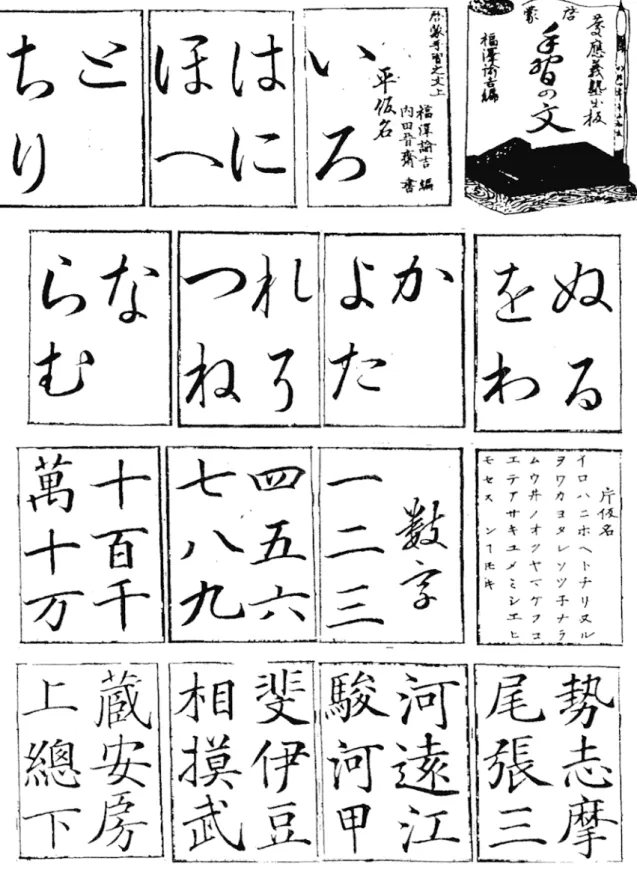 慶應義塾出板
啓蒙
手習の文
福澤諭吉編
啓蒙手習之文上
福澤諭吉 編
内田晉齋 書
平仮名
いろ
はに
ほへ
と
ちり
ぬる
をわ
か
よた
れそ
つね
な
らむ
片仮名
イロハニホヘトチリヌル
ヲワカヨタレソツ子ナラ
ムウ井ノオクヤマケフコ
エテアサキユメミシヱヒ
モセス ン
数字
一二三
四五六
七八九
十百千
萬十万
勢志摩
尾張三
河遠江
駿河甲
斐伊豆
相摸武
蔵安房
上總下